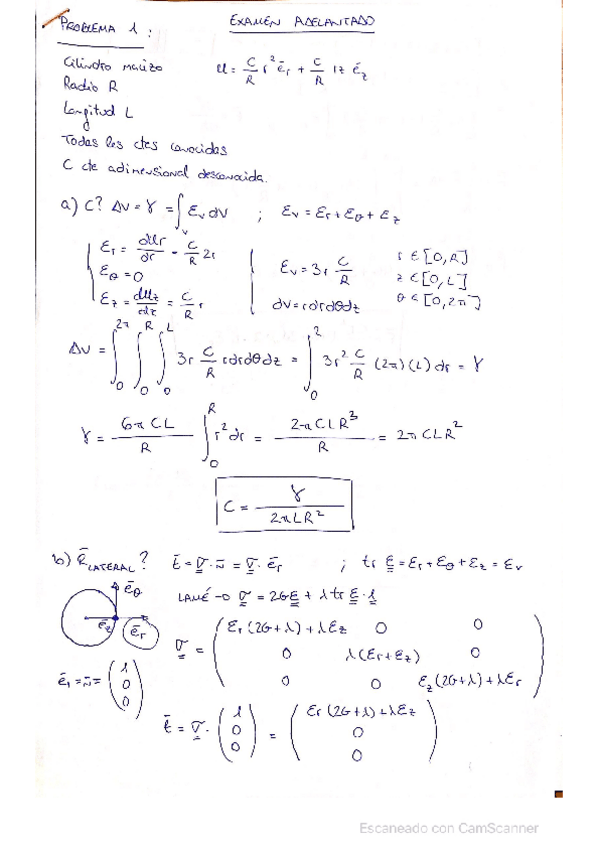 EXAMEN ADELANTADO
PROBLEMA 1:
Cilindro macizo
Radio R
Longitud L
Todas las ctes conocidas
C cte adimensional desconocida.
u = C/R r² ēr + C/R rz ēz
a) C? ΔV = γ = ∫v Ev dV ; Ev = Er + Eθ + Ez
Er = dur/dr = C/R 2r
Eθ = 0
Ez = duz/dz = C/R r
Ev = 3r C/R
dV = rdrdθdz
r ∈ [0,R]
z ∈ [0,L]
θ ∈ [0,2π]
ΔV = ∫₀^2π ∫₀^R ∫₀^L 3r C/R rdrdθdz = ∫₀^2 3r² C/R (2π)(L) dr = γ
γ = 6πCL/R ∫₀^R r² dr = 2πCLR³/R = 2πCLR²
C = γ/2πLR²
b) R̄LATERAL? t̄ = σ · n̄ = σ · ēr ; tr E = Er + Eθ + Ez = Ev
LAMÉ → σ = 2GE + λ tr E · 1
ēθ
ēz ēr
σ = ( Er(2G+λ)+λEz 0 0
0 λ(Er+Ez) 0
0 0 Ez(2G+λ)+λEr )
ēr = n̄ = (1 0 0)
t̄ = σ · (1 0 0) = ( Er(2G+λ)+λEz 0 0 )
Escaneado con CamScanner